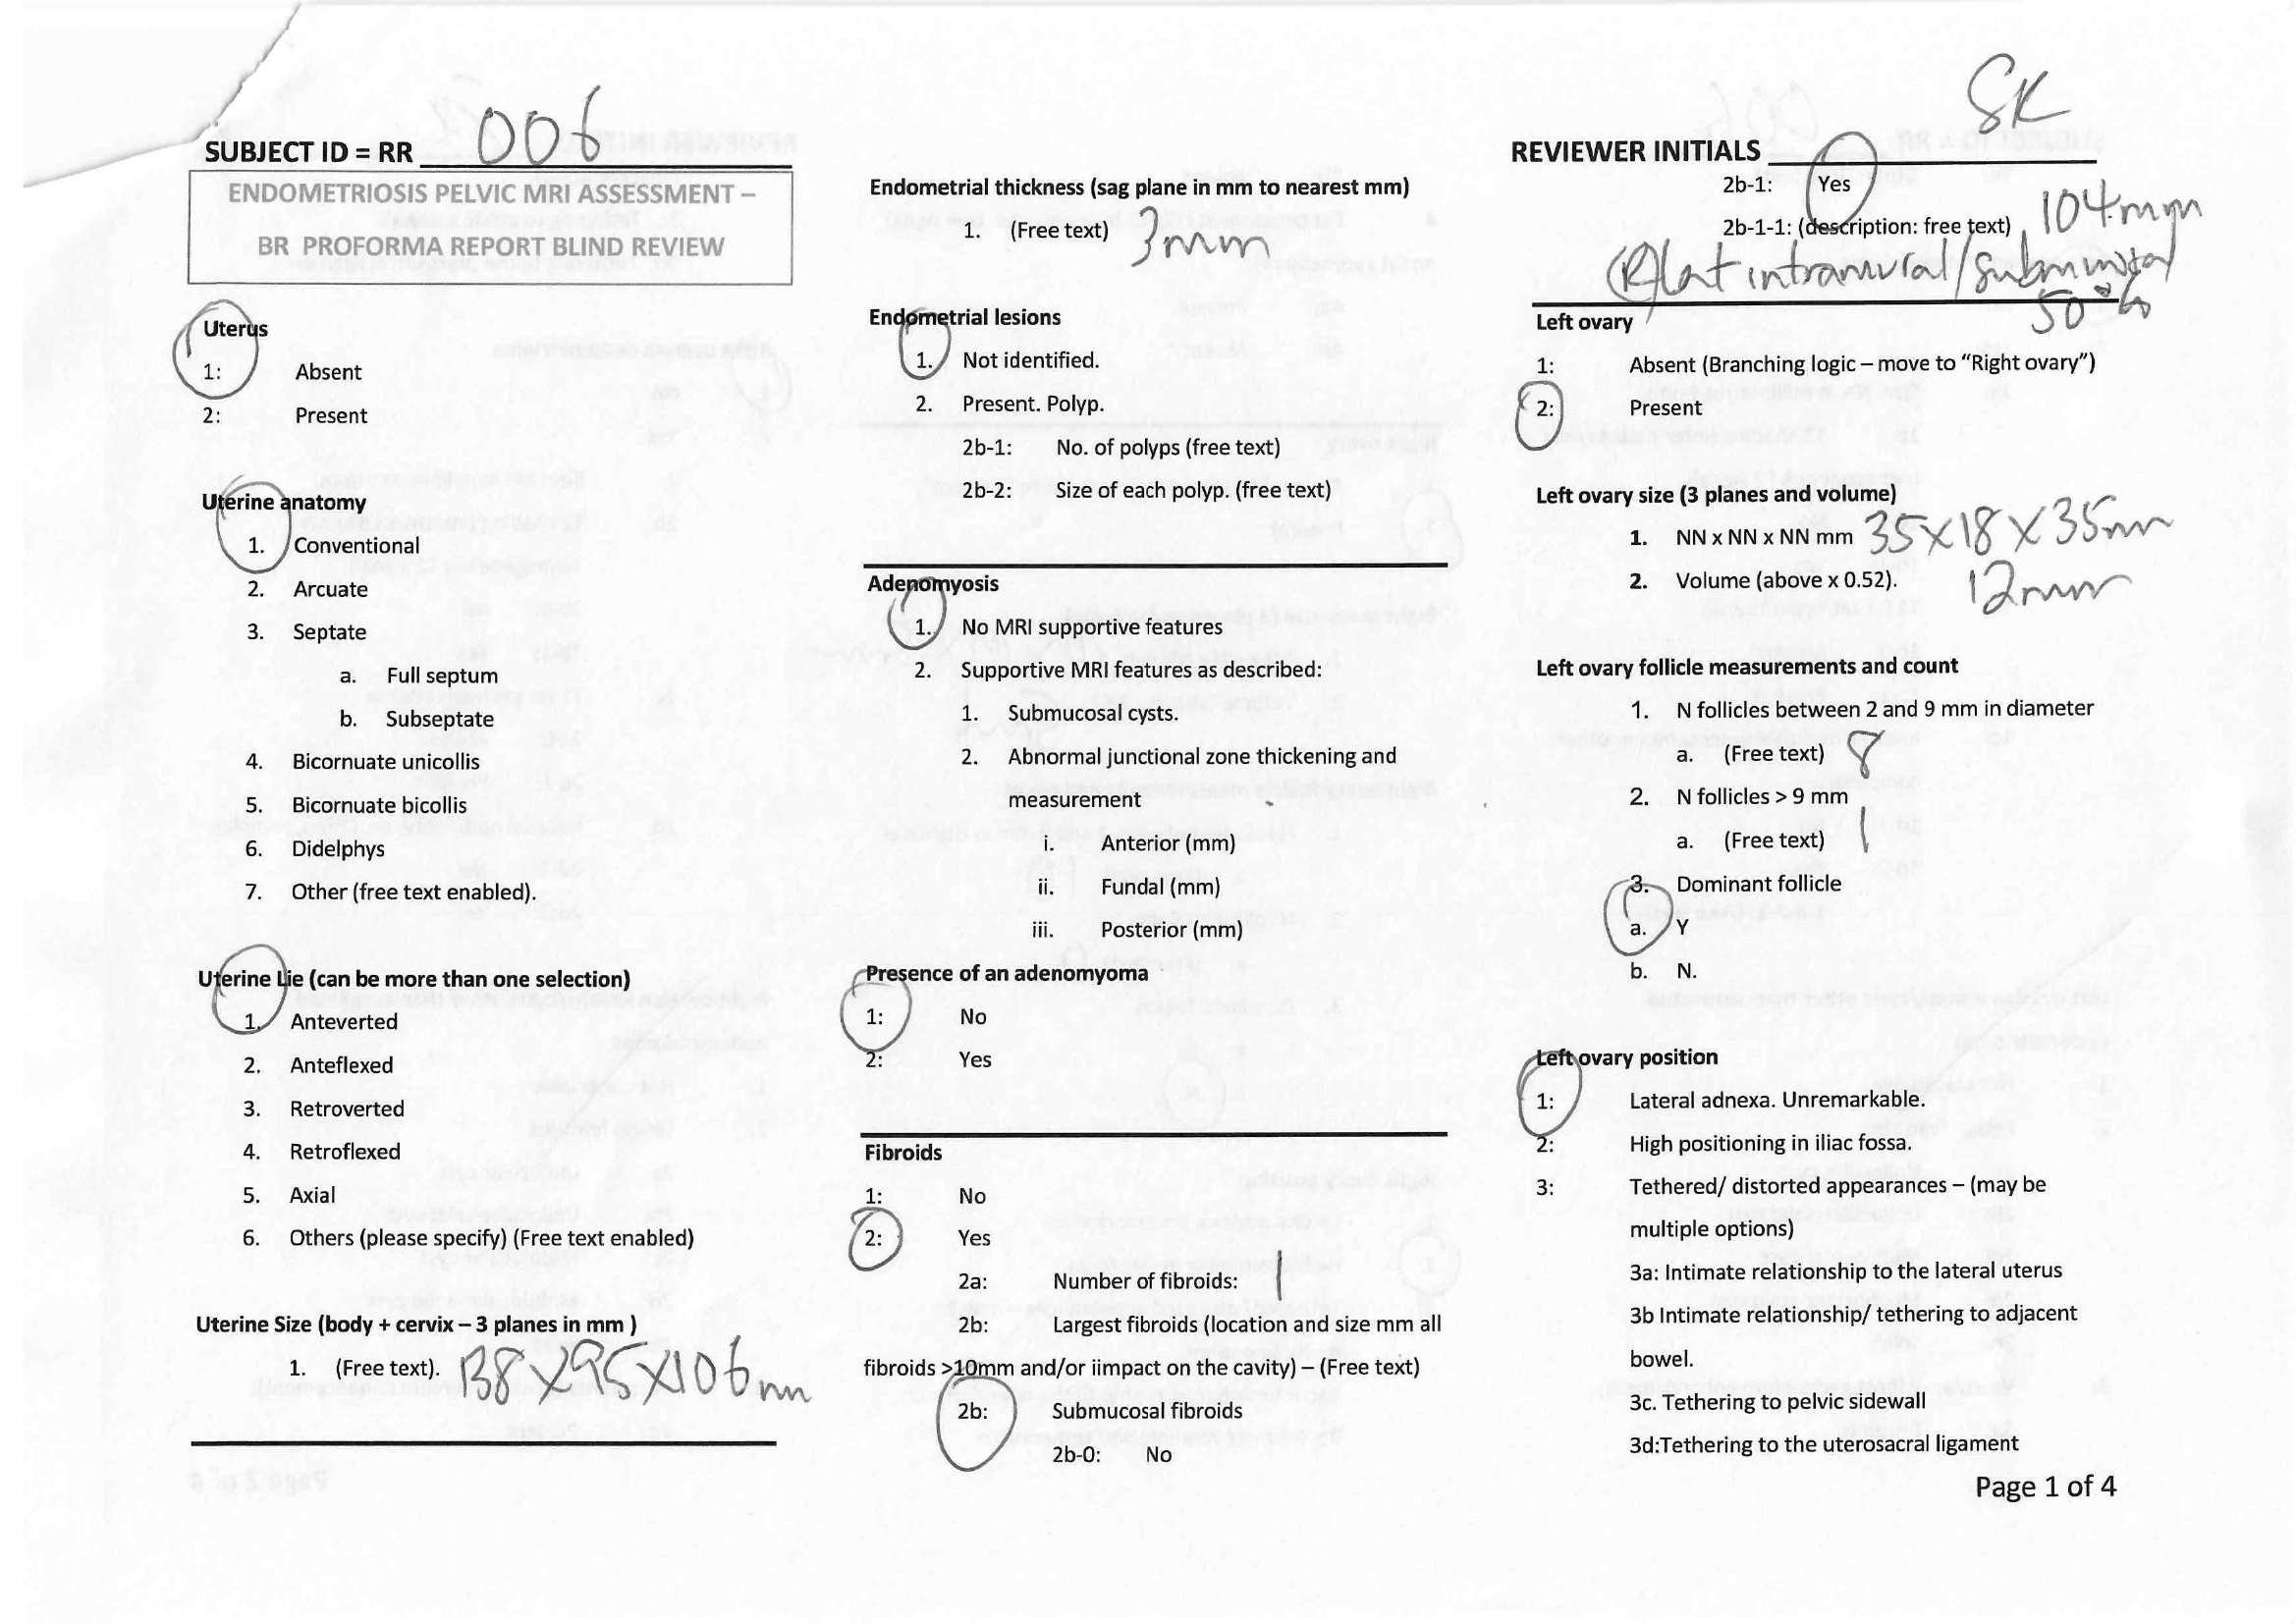 SUBJECT ID = RR 006
ENDOMETRIOSIS PELVIC MRI ASSESSMENT –
BR PROFORMA REPORT BLIND REVIEW
Uterus
1: Absent
2: Present
Uterine anatomy
1. Conventional
2. Arcuate
3. Septate
a. Full septum
b. Subseptate
4. Bicornuate unicollis
5. Bicornuate bicollis
6. Didelphys
7. Other (free text enabled).
Uterine Lie (can be more than one selection)
1. Anteverted
2. Anteflexed
3. Retroverted
4. Retroflexed
5. Axial
6. Others (please specify) (Free text enabled)
Uterine Size (body + cervix – 3 planes in mm )
1. (Free text). 138X95X106mm
Endometrial thickness (sag plane in mm to nearest mm)
1. (Free text) 3mm
Endometrial lesions
1. Not identified.
2. Present. Polyp.
2b-1: No. of polyps (free text)
2b-2: Size of each polyp. (free text)
Adenomyosis
1. No MRI supportive features
2. Supportive MRI features as described:
1. Submucosal cysts.
2. Abnormal junctional zone thickening and
measurement
i. Anterior (mm)
ii. Fundal (mm)
iii. Posterior (mm)
Presence of an adenomyoma
1: No
2: Yes
Fibroids
1: No
2: Yes
2a: Number of fibroids: 1
2b: Largest fibroids (location and size mm all
fibroids >10mm and/or iimpact on the cavity) – (Free text)
2b: Submucosal fibroids
2b-0: No
REVIEWER INITIALS SK
2b-1: Yes
2b-1-1: (description: free text) 104mm
(R) lat intramural/submucosal
50%
Left ovary
1: Absent (Branching logic – move to “Right ovary”)
2: Present
Left ovary size (3 planes and volume)
1. NN x NN x NN mm 35X18X35mm
2. Volume (above x 0.52). 12mm
Left ovary follicle measurements and count
1. N follicles between 2 and 9 mm in diameter
a. (Free text) 8
2. N follicles > 9 mm
a. (Free text) 1
3. Dominant follicle
a. Y
b. N.
Left ovary position
1: Lateral adnexa. Unremarkable.
2: High positioning in iliac fossa.
3: Tethered/ distorted appearances – (may be
multiple options)
3a: Intimate relationship to the lateral uterus
3b Intimate relationship/ tethering to adjacent
bowel.
3c. Tethering to pelvic sidewall
3d:Tethering to the uterosacral ligament
Page 1 of 4